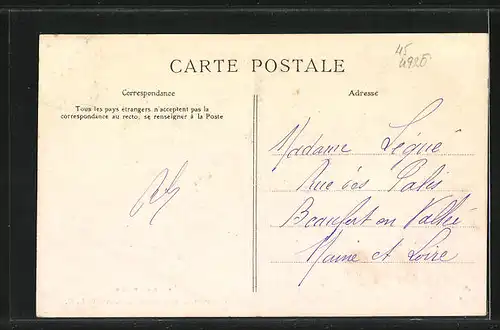 45
4920
CARTE POSTALE
Correspondance
Tous les pays étrangers n'acceptent pas la
correspondance au recto, se renseigner à la Poste
Adresse
Madame Légué
Rue des
Beaufort en Vallée
Maine et Loire